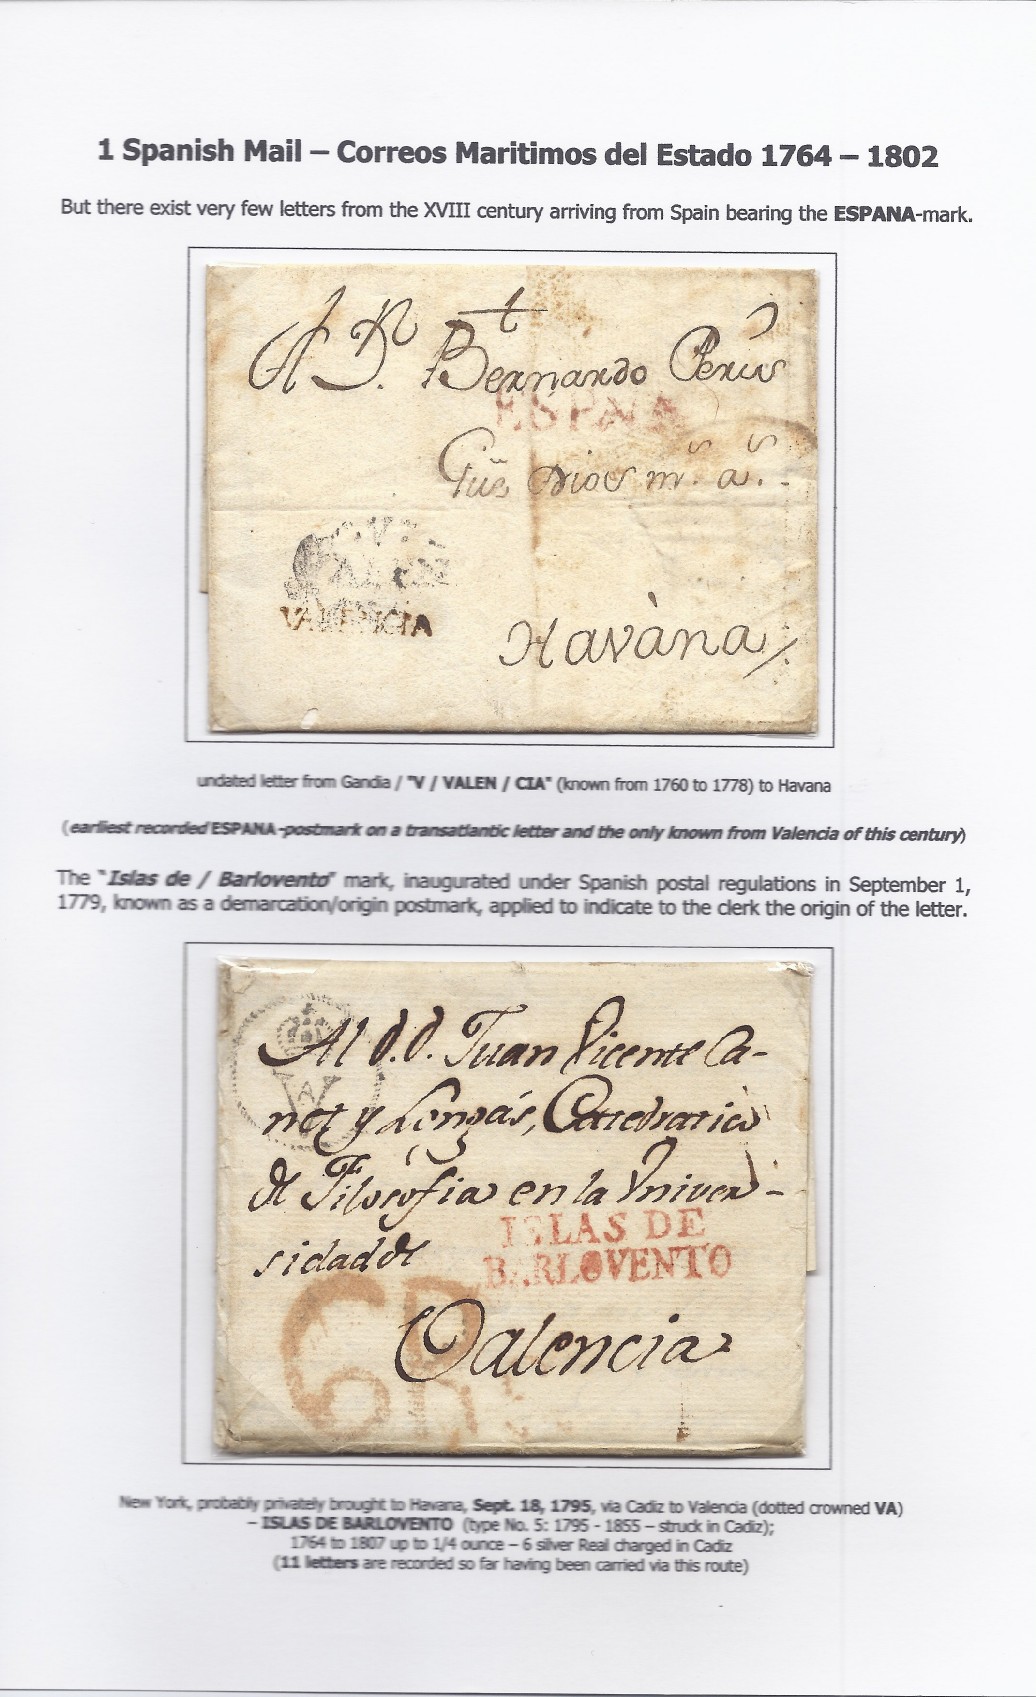 1 Spanish Mail – Correos Maritimos del Estado 1764 – 1802
But there exist very few letters from the XVIII century arriving from Spain bearing the ESPANA-mark.
A Dn Bernardo
ESPAÑA
Dios ms as
VALEN
VALENCIA
Havàna
undated letter from Gandia / "V / VALEN / CIA" (known from 1760 to 1778) to Havana
(earliest recorded ESPANA-postmark on a transatlantic letter and the only known from Valencia of this century)
The "Islas de / Barlovento" mark, inaugurated under Spanish postal regulations in September 1,
1779, known as a demarcation/origin postmark, applied to indicate to the clerk the origin of the letter.
Al d.d. Juan Vicente Ca-
VA
not y Lonzás, Catedratico
de Filosofia en la Vniver-
ISLAS DE
sidad de
BARLOVENTO
6R
Valencia
New York, probably privately brought to Havana, Sept. 18, 1795, via Cadiz to Valencia (dotted crowned VA)
– ISLAS DE BARLOVENTO (type No. 5: 1795 - 1855 – struck in Cadiz);
1764 to 1807 up to 1/4 ounce – 6 silver Real charged in Cadiz
(11 letters are recorded so far having been carried via this route)